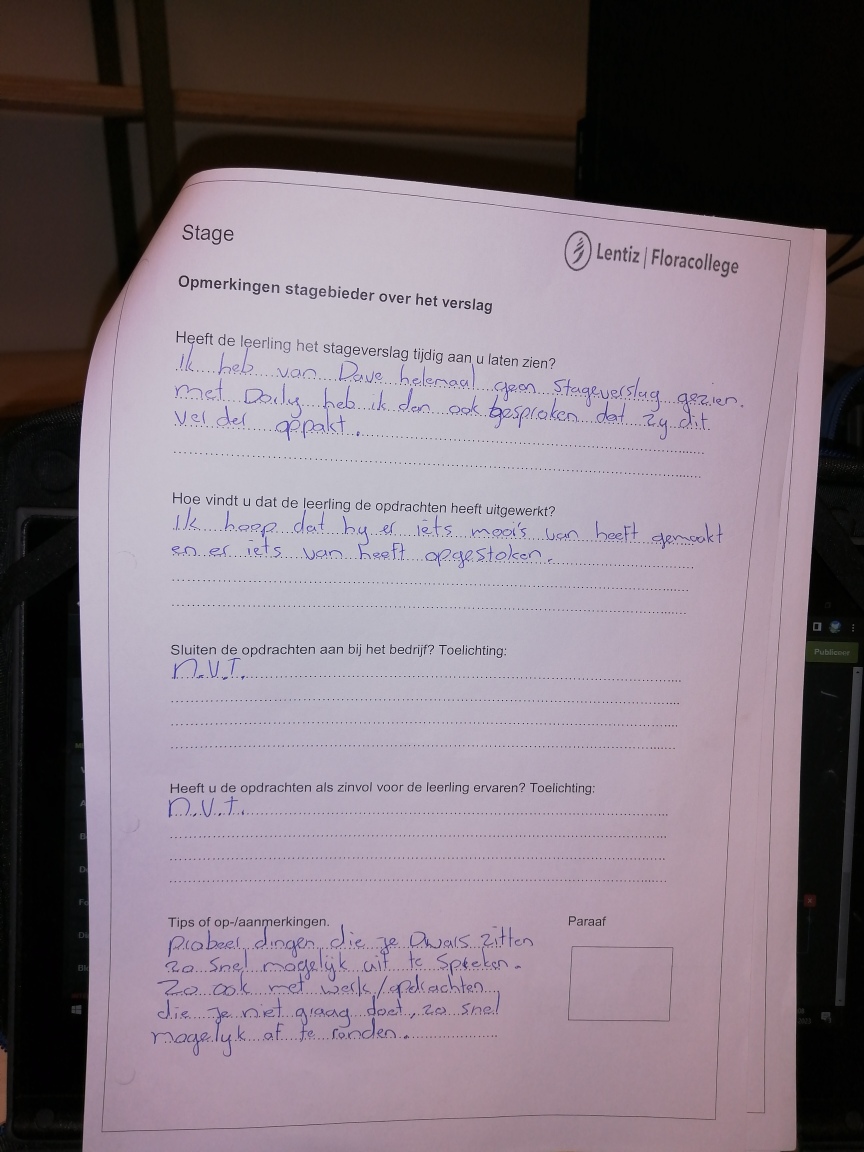 Stage
Lentiz | Floracollege
Opmerkingen stagebieder over het verslag
Heeft de leerling het stageverslag tijdig aan u laten zien?
Ik heb van Dave helemaal geen stageverslag gezien.
met Doily heb ik dan ook besproken dat zy dit
verder oppakt.
Hoe vindt u dat de leerling de opdrachten heeft uitgewerkt?
Ik hoop dat hy er iets moois van heeft gemaakt
en er iets van heeft opgestoken.
Sluiten de opdrachten aan bij het bedrijf? Toelichting:
n.v.t.
Heeft u de opdrachten als zinvol voor de leerling ervaren? Toelichting:
n.v.t.
Tips of op-/aanmerkingen.
Paraaf
Probeer dingen die je Dwars zitten
zo snel mogelijk uit te spreken.
Zo ook met werk/opdrachten
die je niet graag doet, zo snel
mogelyk af te ronden.
Publiceer